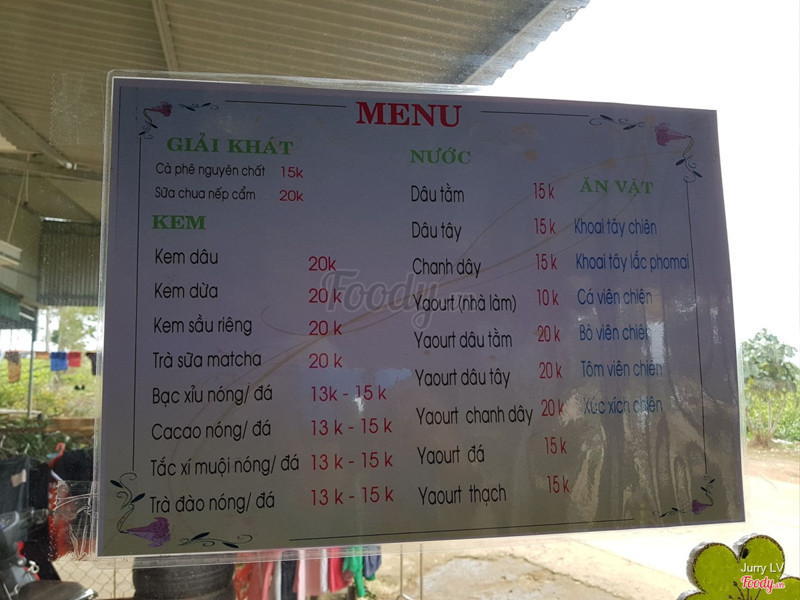 MENU
GIẢI KHÁT
Cà phê nguyên chất 15k
Sữa chua nếp cẩm 20k
KEM
Kem dâu 20k
Kem dừa 20 k
Kem sầu riêng 20 k
Trà sữa matcha 20 k
Bạc xỉu nóng/ đá 13k - 15 k
Cacao nóng/ đá 13 k - 15 k
Tắc xí muội nóng/ đá 13 k - 15 k
Trà đào nóng/ đá 13 k - 15 k
NƯỚC
Dâu tằm 15 k
Dâu tây 15 k
Chanh dây 15 k
Yaourt (nhà làm) 10 k
Yaourt dâu tằm 20 k
Yaourt dâu tây 20 k
Yaourt chanh dây 20 k
Yaourt đá 15 k
Yaourt thạch 15 k
ĂN VẶT
Khoai tây chiên
Khoai tây lắc phomai
Cá viên chiên
Bò viên chiên
Tôm viên chiên
Xúc xích chiên
Foody
Jurry LV
Foody.vn